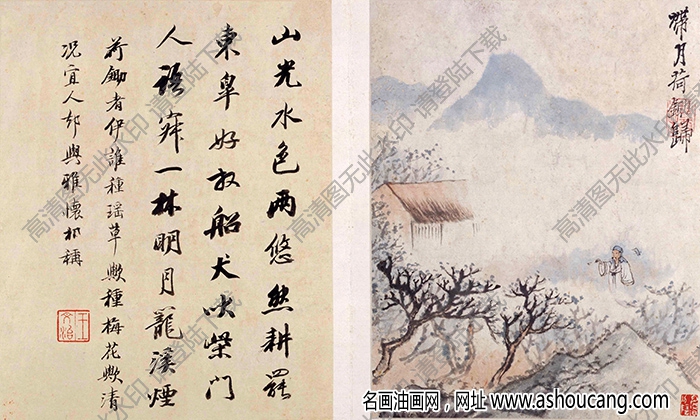 帶月荷鋤歸
山光水色两悠然耕罷
東皐好放船犬吠柴門
人語寂一林明月龍溪煙
荷鋤者伊誰種瑶草歟種梅花歟清
况宜人却與雅懷相稱
王文治
高清图无此水印 请登陆下载
名画油画网，网址 www.ashoucang.com